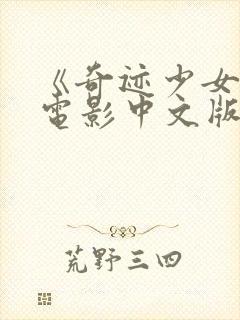 《奇迹少女
电影中文版
荒野三四